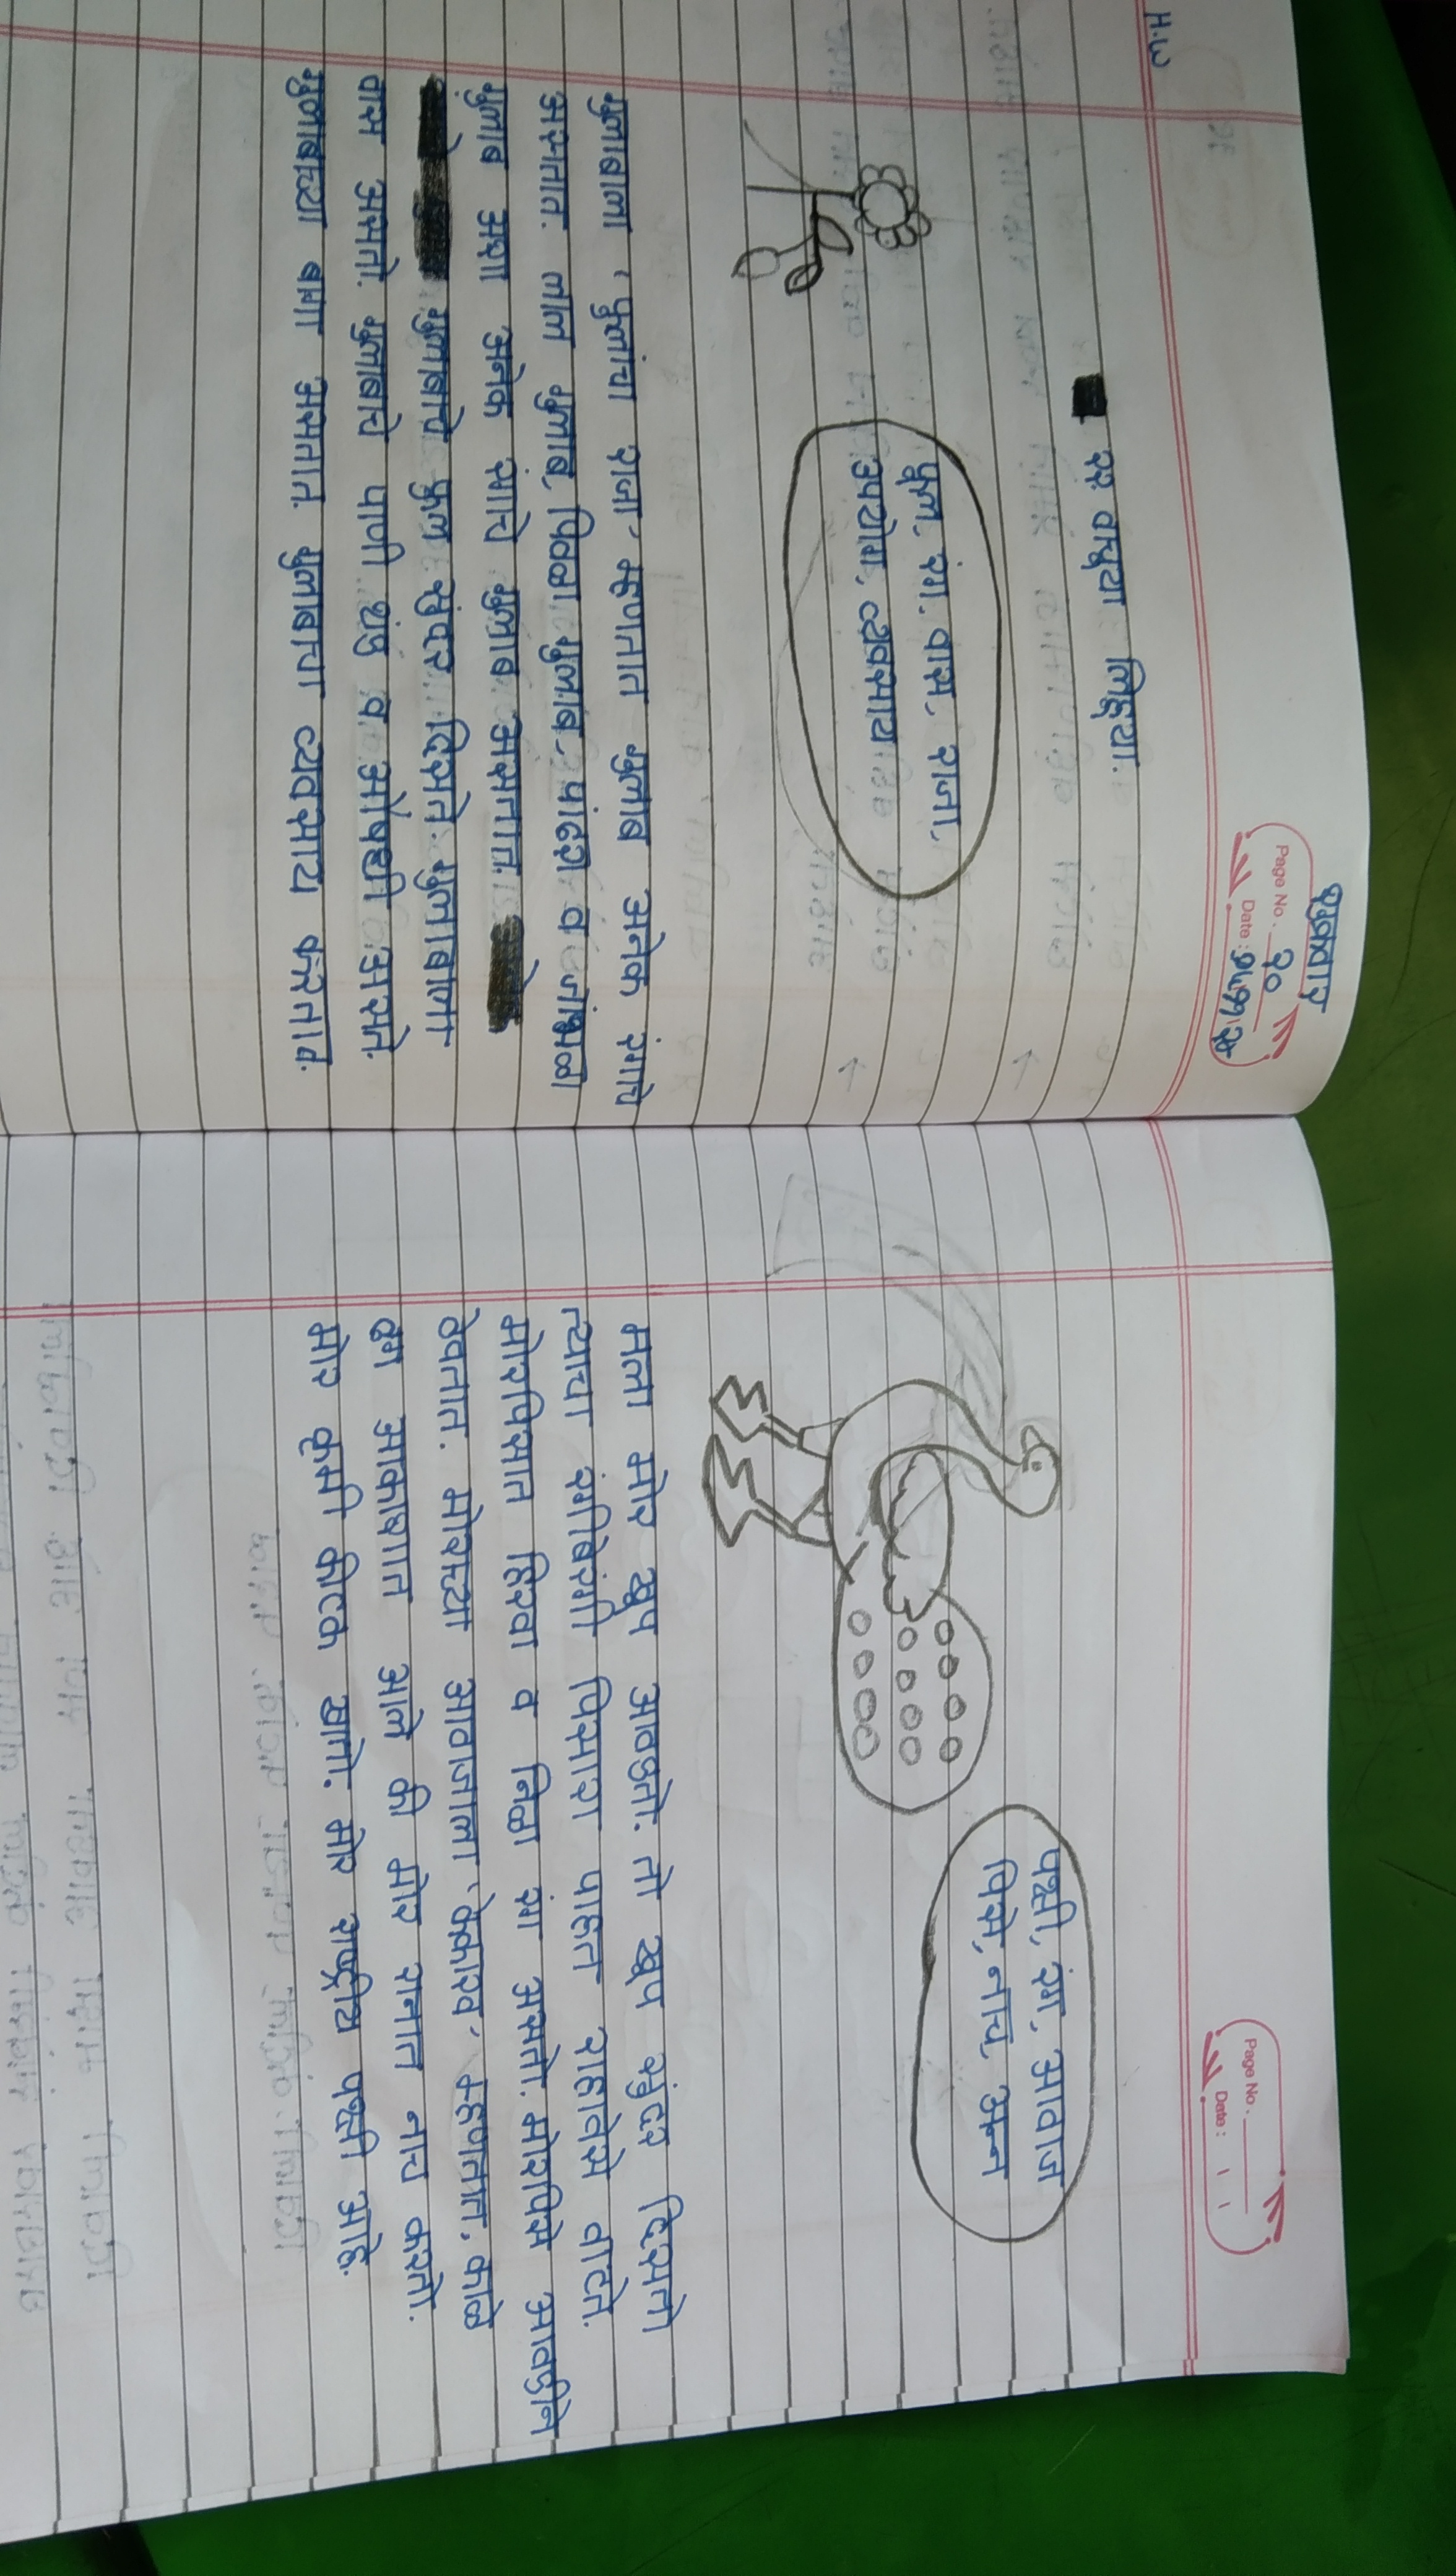 शुक्रवार
Page No. १०
Date: १५।९।२३
H.W
२९ वस्तूच्या लिहूया.
फुल, रंग, वास, राजा,
उपयोग, व्यवसाय
गुलाबाला 'फुलांचा राजा' म्हणतात गुलाब अनेक रंगाचे
असतात. लाल गुलाब, पिवळा गुलाब, पांढरा व जांभळा
गुलाब अशा अनेक रंगाचे गुलाब असतात.
गुलाबाचे फुल सुंदर दिसते. गुलाबाला
वास असतो. गुलाबाचे पाणी थंड व औषधी असते.
गुलाबाच्या बागा असतात. गुलाबाचा व्यवसाय करतात.
Page No.
Date:
पक्षी, रंग, आवाज
पिसे, नाच, अन्न
मला मोर खुप आवडतो. तो खुप सुंदर दिसतो
त्याचा रंगीबेरंगी पिसारा पाहत राहावेसे वाटते.
मोरपिसात हिरवा व निळा रंग असतो. मोरपिसे आवडीने
ठेवतात. मोराच्या आवाजाला 'केकारव' म्हणतात. काळे
ढग आकाशात आले की मोर रानात नाच करतो.
मोर कृमी कीटक खातो. मोर राष्ट्रीय पक्षी आहे.